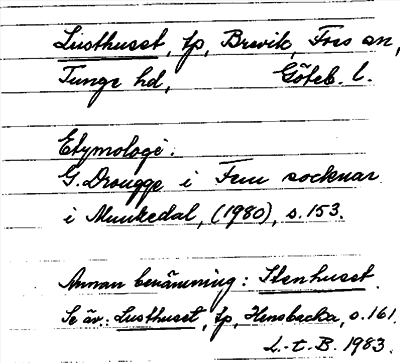 Lusthuset, tp, Brevik, Foss sn,
Tunge hd, Göteb. l.
Etymologi.
G. Drougge i Fem socknar
i Munkedal, (1980), s. 153.
Annan benämning: Stenhuset
Se äv.: Lusthuset, tp, Hensbacka, s. 161.
L.-t. B. 1983.